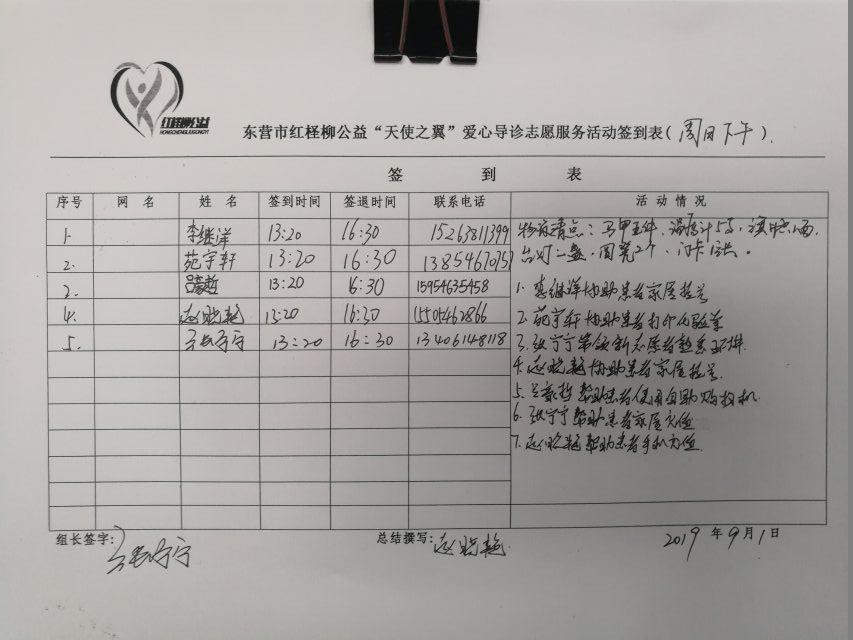 红柽柳公益
HONGCHENGLIUGONGYI
东营市红柽柳公益“天使之翼”爱心导诊志愿服务活动签到表(周日下午).
签 到 表
序号 网 名 姓 名 签到时间 签退时间 联系电话 活 动 情 况
1. 李继洋 13:20 16:30 15263811399
2. 苑宇轩 13:20 16:30 1385467075
3. 吕豪哲 13:20 16:30 15954635458
4. 赵晓艳 13:20 16:30
5. 张宁宁 13:20 16:30 13406148118
物资清点：马甲五件、温度计5支，
台灯二盏，
1. 李继洋协助患者家属挂号
2. 苑宇轩协助患者打印化验单
3. 张宁宁带领新志愿者熟悉环境
4. 赵晓艳协助患者家属挂号
5. 吕豪哲帮助患者使用自助
6. 张宁宁帮助患者家属充值
7. 赵晓艳帮助患者手机充值
组长签字：张宁宁 总结撰写：赵晓艳 2019 年 9 月 1 日